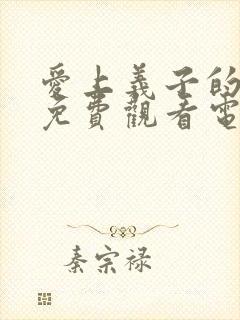 愛上義子的
免費觀看電
秦宗禄